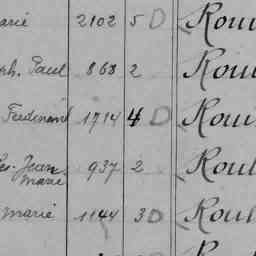 arie 2102 5 D Roui
ph. Paul 868 2 Roui
Ferdinand 1714 4 D Roui
Jean 937 2 Roul
Marie
Marie 1144 3 D Roul